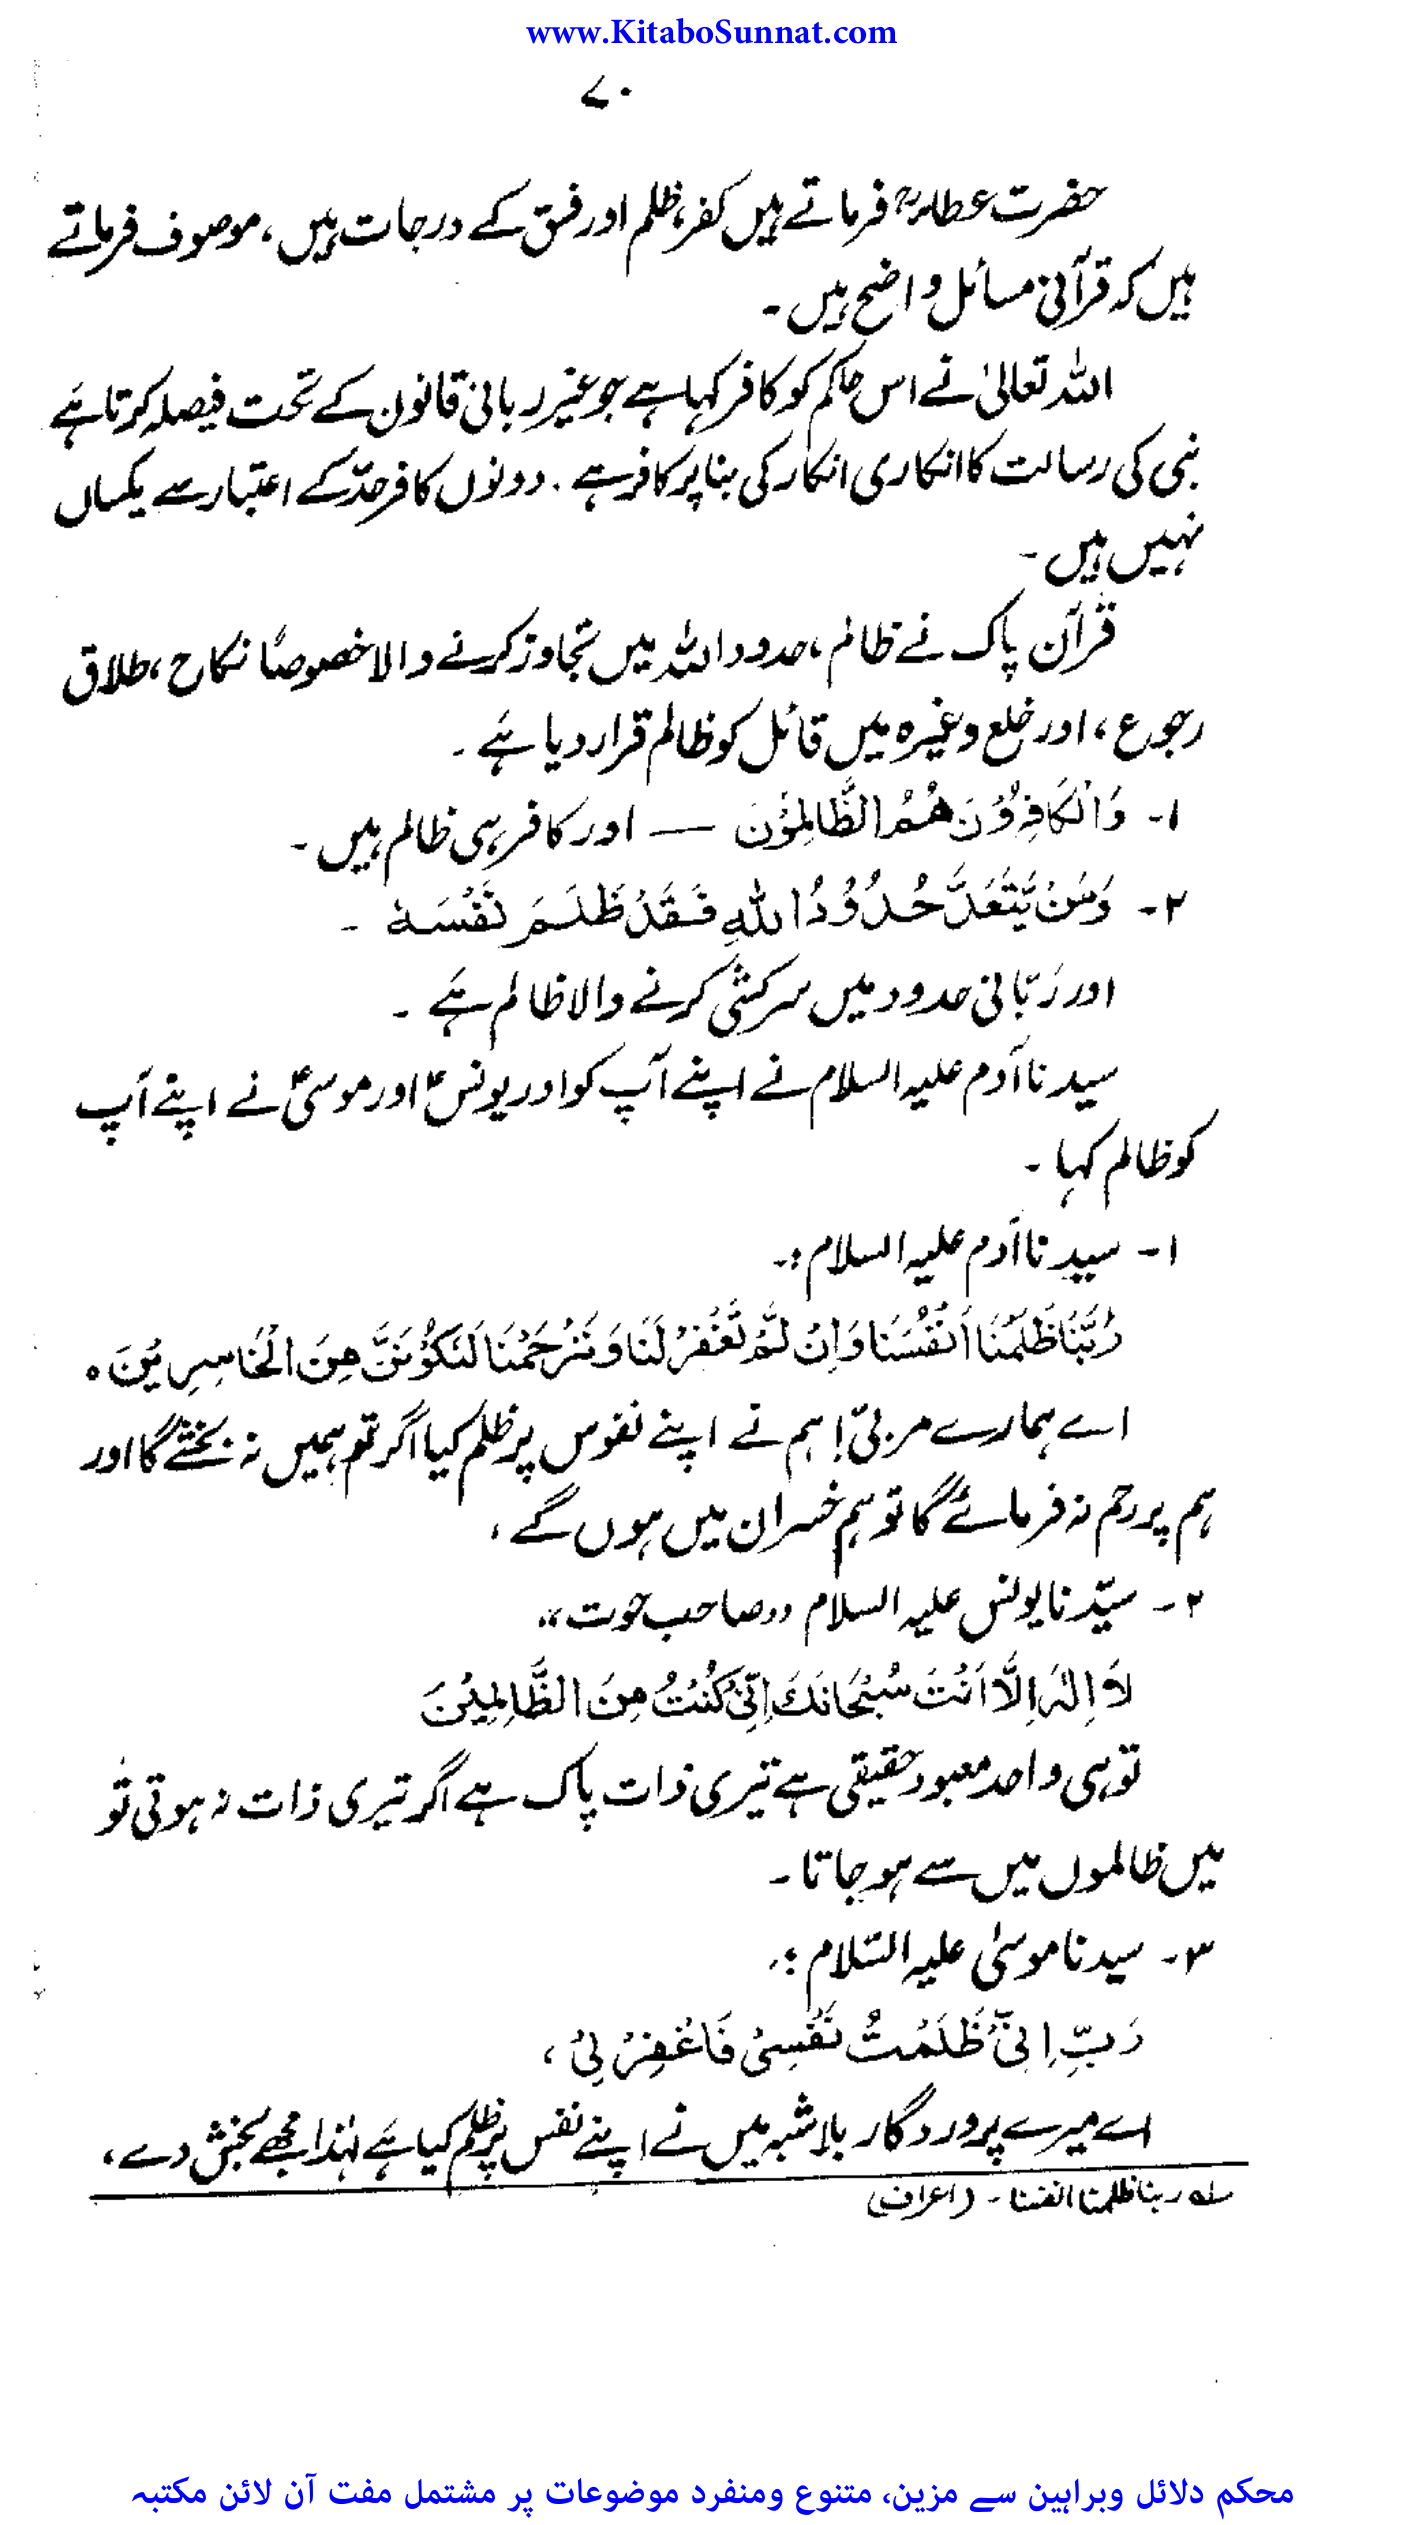 www.KitaboSunnat.com
۷۰
حضرت عطاءؒ فرماتے ہیں کفر، ظلم اور فسق کے درجات ہیں، موصوف فرماتے
ہیں کہ قرآنی مسائل واضح ہیں۔
اللہ تعالیٰ نے اس حاکم کو کافر کہا ہے جو غیر ربانی قانون کے تحت فیصلہ کرتا ہے
نبی کی رسالت کا انکاری انکار کی بنا پر کافر ہے۔ دونوں کافر حدّ کے اعتبار سے یکساں
نہیں ہیں۔
قرآن پاک نے ظالم، حدود اللہ میں تجاوز کرنے والا خصوصاً نکاح، طلاق
رجوع، اور خلع وغیرہ میں قائل کو ظالم قرار دیا ہے۔
۱- وَالْكَافِرُوْنَ هُمُ الظَّالِمُوْنَ — اور کافر ہی ظالم ہیں۔
۲- وَمَنْ يَّتَعَدَّ حُدُوْدُ اللهِ فَقَدْ ظَلَمَ نَفْسَهٗ ۔
اور رَبّانی حدود میں سرکشی کرنے والا ظالم ہے ۔
سیدنا آدم علیہ السلام نے اپنے آپ کو اور یونسؑ اور موسیؑ نے اپنے آپ
کو ظالم کہا ۔
۱- سیدنا آدم علیہ السلام :۔
رَبَّنَا ظَلَمْنَا اَنْفُسَنَا وَاِنْ لَّمْ تَغْفِرْ لَنَا وَتَرْحَمْنَا لَنَكُوْنَنَّ مِنَ الْخَاسِرِيْنَ ہ
اے ہمارے مربیّ! ہم نے اپنے نفوس پر ظلم کیا اگر تم ہمیں نہ بخشے گا اور
ہم پر رحم نہ فرمائے گا تو ہم خسران میں ہوں گے ،
۲- سیّدنا یونس علیہ السلام ،،صاحب حوت،،
لَا اِلٰهَ اِلَّا اَنْتَ سُبْحَانَكَ اِنِّیْ كُنْتُ مِنَ الظَّالِمِيْنَ
تو ہی واحد معبود حقیقی ہے تیری ذات پاک ہے اگر تیری ذات نہ ہوتی تو
میں ظالموں میں سے ہو جاتا۔
۳- سیدنا موسیٰ علیہ السّلام :۔
رَبِّ اِنِّیْ ظَلَمْتُ نَفْسِیْ فَاغْفِرْ لِیْ ،
اے میرے پروردگار بلا شبہ میں نے اپنے نفس پر ظلم کیا ہے لہٰذا مجھے بخش دے،
لہ ربنا ظلمنا انفسنا - (اعراف)
محکم دلائل وبراہین سے مزین، متنوع ومنفرد موضوعات پر مشتمل مفت آن لائن مکتبہ